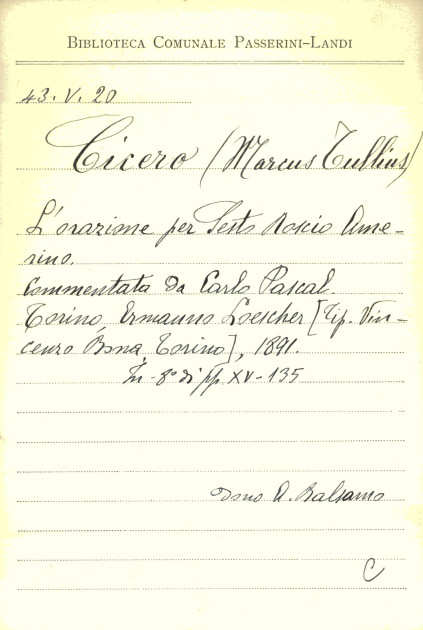 BIBLIOTECA COMUNALE PASSERINI-LANDI
43. V. 20
Cicero (Marcus Tullius)
L'orazione per Sesto Roscio Ame-
rino.
Commentata da Carlo Pascal.
Torino, Ermanno Loescher [Tip. Vin-
cenzo Bona, Torino], 1891.
In-8° di pp. XV-135
Dono A. Balsamo
C